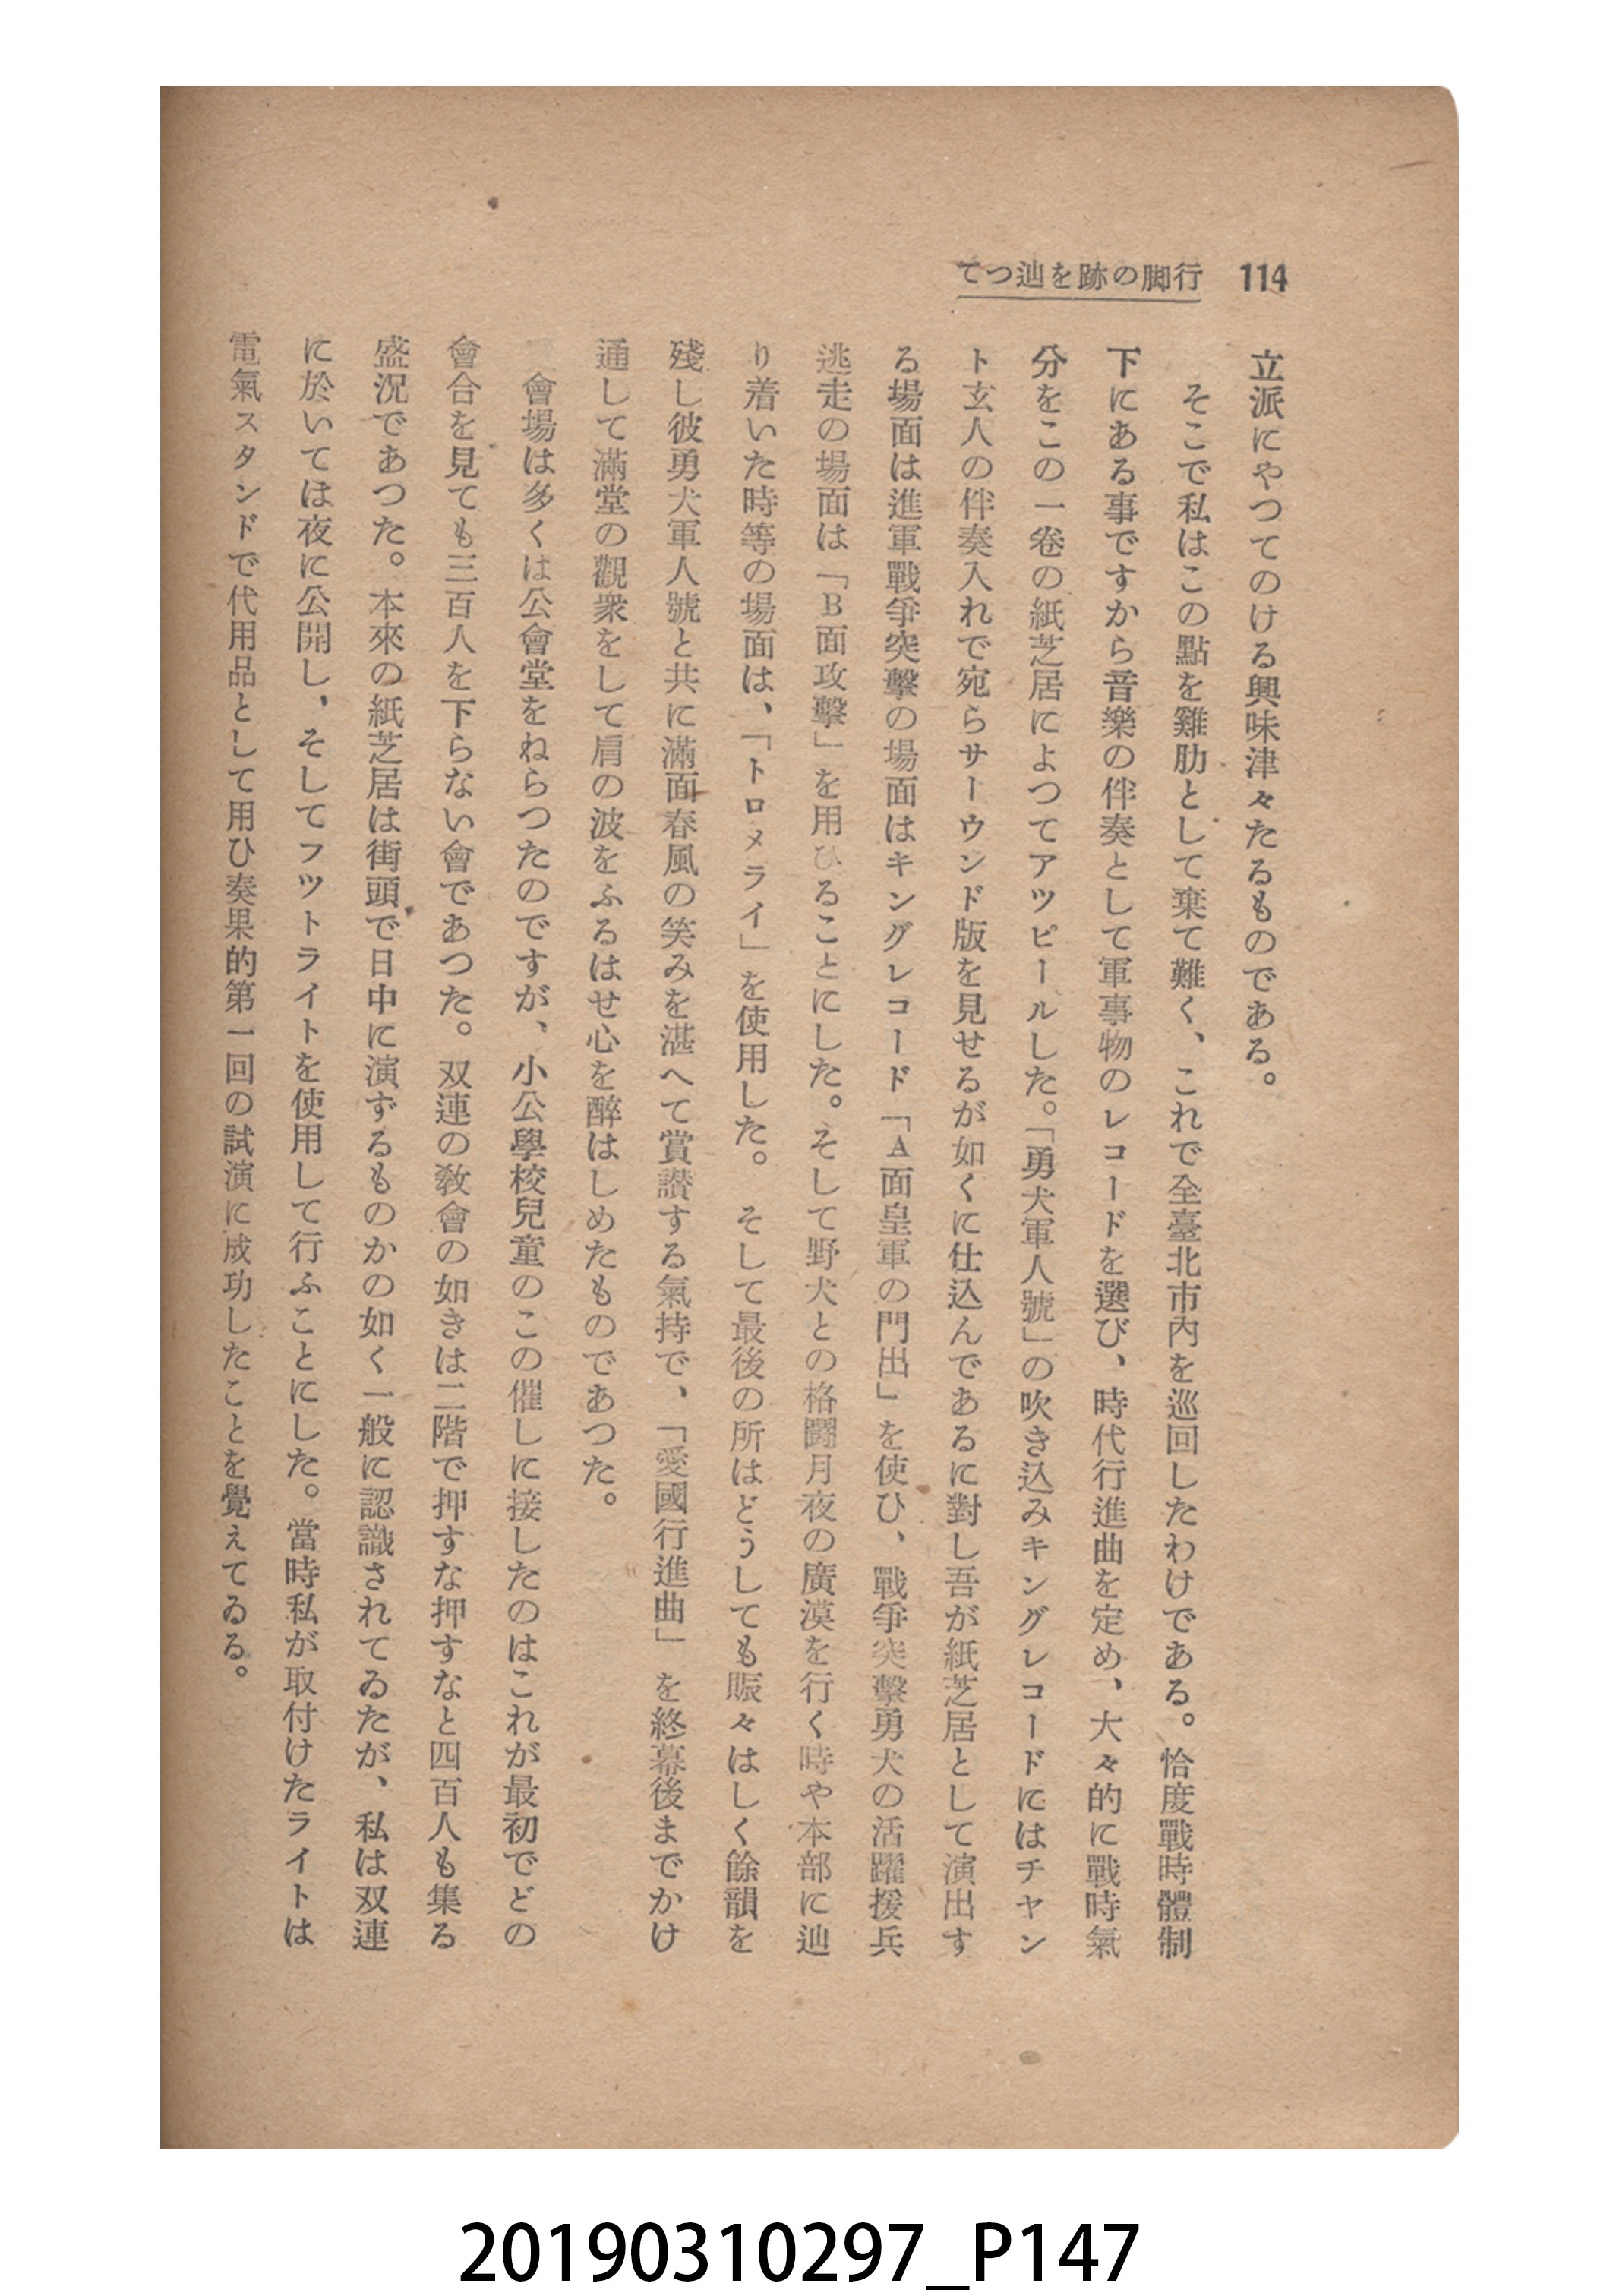 114 行脚の跡を辿つて
立派にやつてのける興味津々たるものである。
そこで私はこの點を雞肋として棄て難く、これで全臺北市內を巡回したわけである。恰度戰時體制
下にある事ですから音樂の伴奏として軍事物のレコードを選び、時代行進曲を定め、大々的に戰時氣
分をこの一卷の紙芝居によつてアツピールした。「勇犬軍人號」の吹き込みキングレコードにはチヤン
ト玄人の伴奏入れで宛らサーウンド版を見せるが如くに仕込んであるに對し吾が紙芝居として演出す
る場面は進軍戰爭突擊の場面はキングレコード「A面皇軍の門出」を使ひ、戰爭突擊勇犬の活躍援兵
逃走の場面は「B面攻擊」を用ひることにした。そして野犬との格鬪月夜の廣漠を行く時や本部に辿
り着いた時等の場面は、「トロメライ」を使用した。そして最後の所はどうしても賑々はしく餘韻を
殘し彼勇犬軍人號と共に滿面春風の笑みを湛へて賞讃する氣持で、「愛國行進曲」を終幕後までかけ
通して滿堂の觀衆をして肩の波をふるはせ心を醉はしめたものであつた。
會場は多くは公會堂をねらつたのですが、小公學校兒童のこの催しに接したのはこれが最初でどの
會合を見ても三百人を下らない會であつた。双連の敎會の如きは二階で押すな押すなと四百人も集る
盛況であつた。本來の紙芝居は街頭で日中に演ずるものかの如く一般に認識されてゐたが、私は双連
に於いては夜に公開し、そしてフツトライトを使用して行ふことにした。當時私が取付けたライトは
電氣スタンドで代用品として用ひ奏果的第一回の試演に成功したことを覺えてゐる。
20190310297_P147